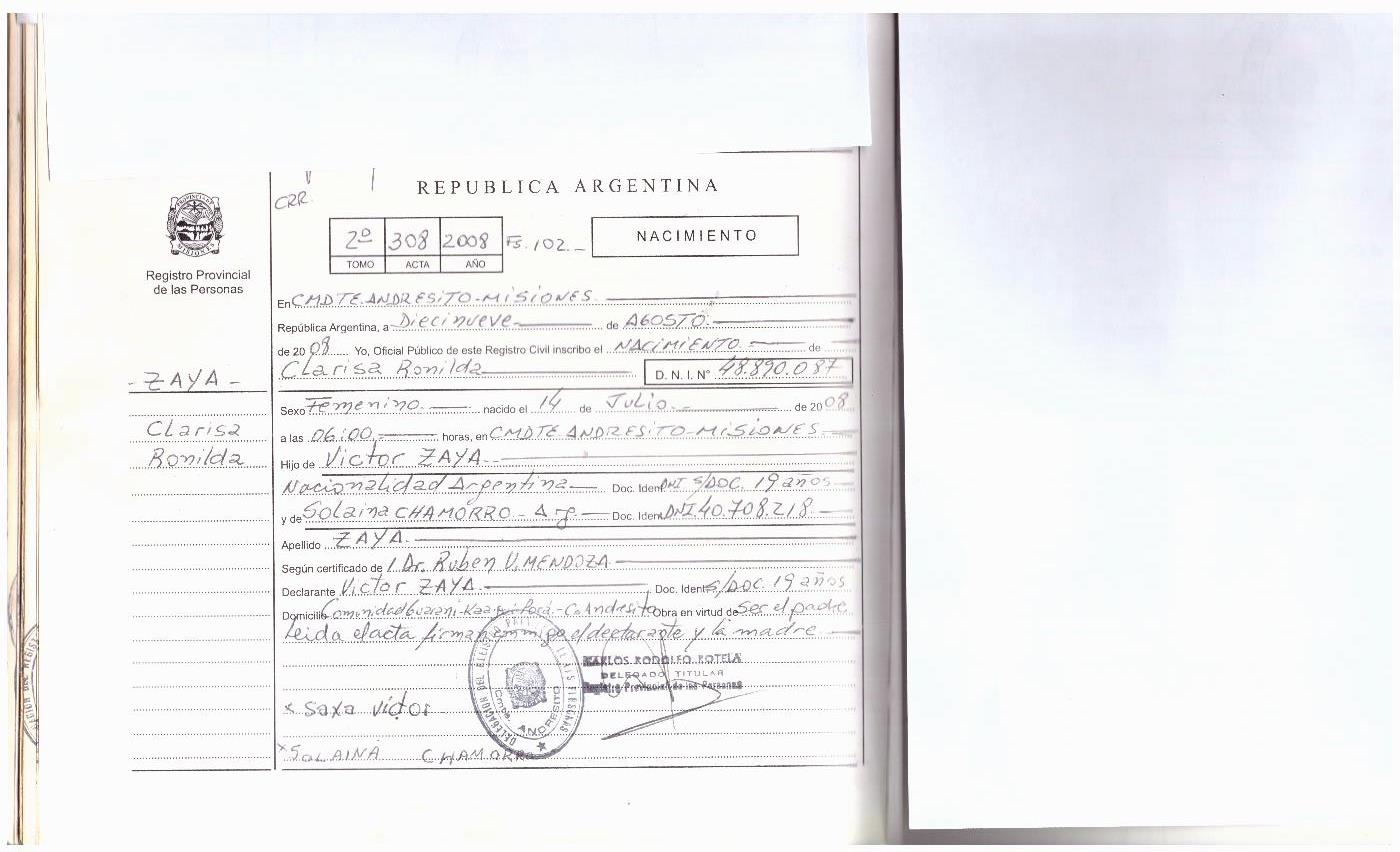 REPUBLICA ARGENTINA
CRR.
2º 308 2008 Fs. 102.-
TOMO ACTA AÑO
NACIMIENTO
PROVINCIA DE MISIONES
Registro Provincial
de las Personas
En CMDTE. ANDRESITO-MISIONES.
República Argentina, a Diecinueve de AGOSTO.
de 2008 Yo, Oficial Público de este Registro Civil inscribo el NACIMIENTO de
Clarisa Ronilda D. N. I. N° 48.890.087
- ZAYA -
Clarisa
Ronilda
Sexo Femenino. nacido el 14 de Julio. de 2008
a las 06:00. horas, en CMDTE ANDRESITO-MISIONES
Hijo de Victor ZAYA.
Nacionalidad Argentina Doc. Ident DNI S/DOC. 19 años
y de Solaina CHAMORRO - Arg. Doc. Ident. DNI 40.708.218.
Apellido ZAYA.
Según certificado de Dr. Ruben V. MENDOZA.
Declarante Victor ZAYA. Doc. Ident S/DOC. 19 años
Domicilio Comunidad Guarani- Porá.- Andresito Obra en virtud de ser el padre
Leida el acta firman conmigo el declarante y la madre.
CARLOS RODOLFO ROTELA
DELEGADO TITULAR
Registro Provincial de las Personas
x Saxa Víctor
ANDRESITO
x SOLAINA CHAMORRO